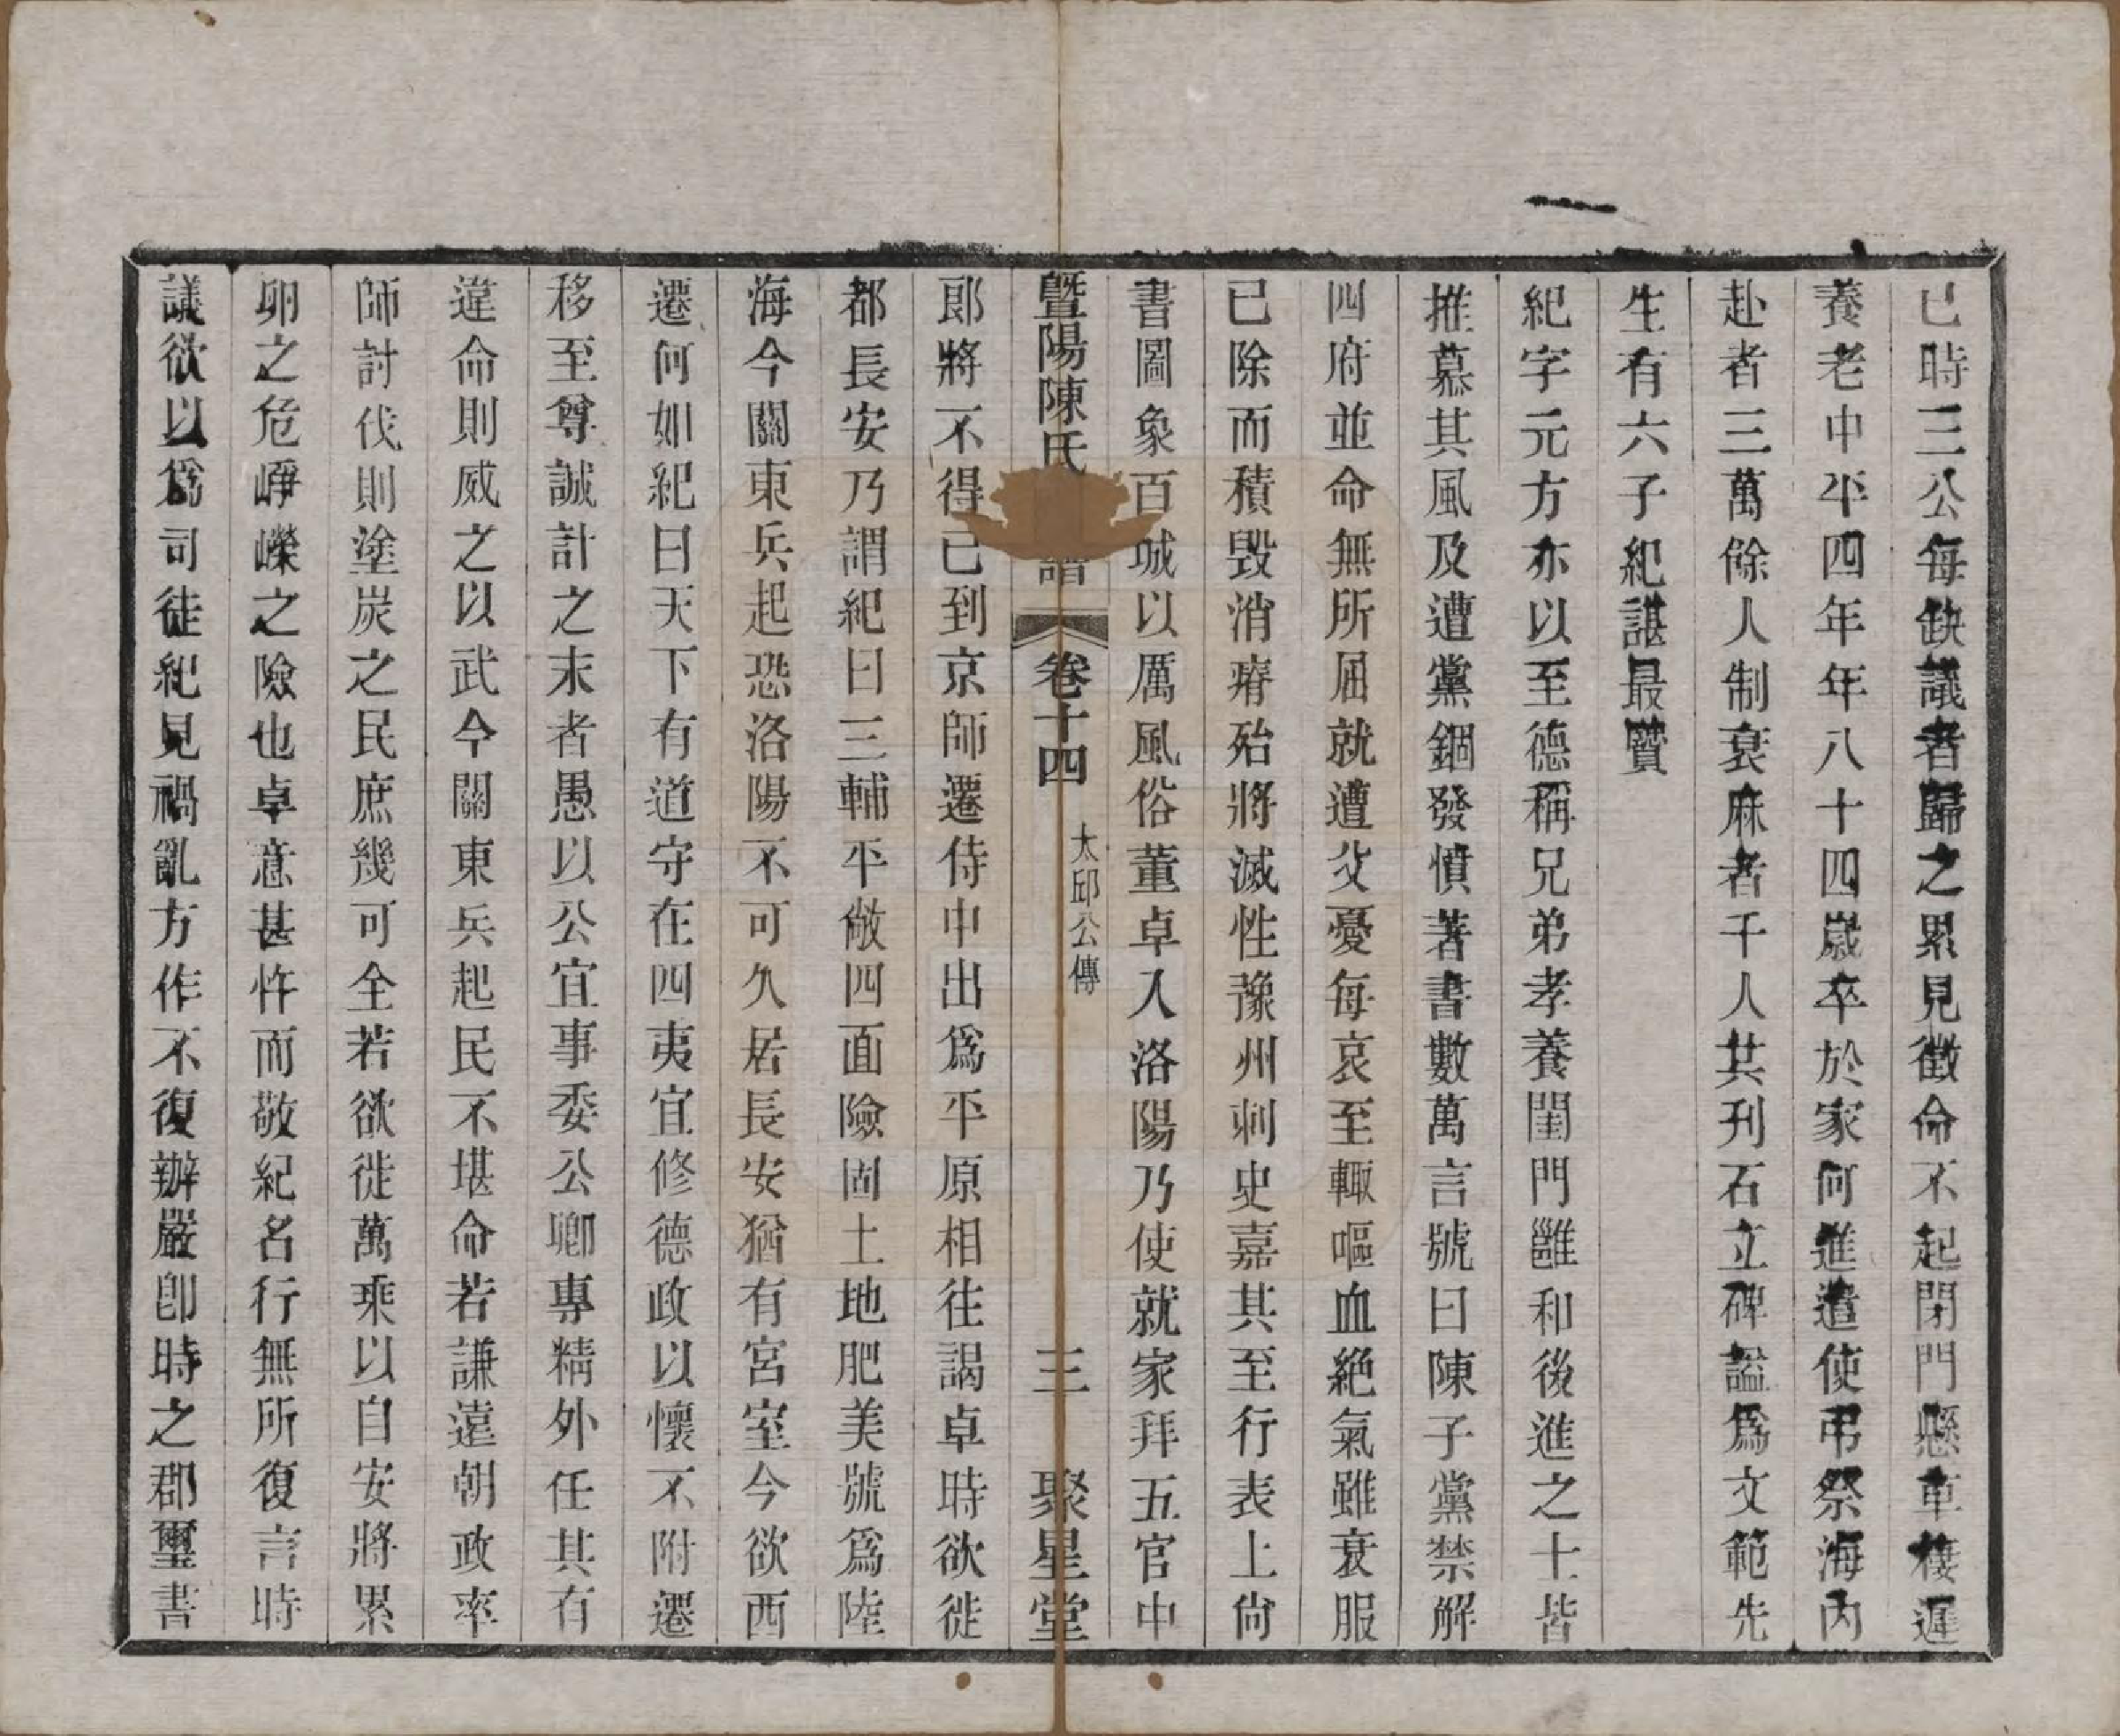 已時三公每缺議者歸之累見徵命不起閉門懸車棲遲
養老中平四年年八十四歲卒於家何進遣使弔祭海內
赴者三萬餘人制衰麻者千人共刋石立碑諡爲文範先
生有六子紀諶最賢
紀字元方亦以至德稱兄弟孝養閨門雝和後進之士皆
推慕其風及遭黨錮發憤著書數萬言號曰陳子黨禁解
四府並命無所屈就遭父憂每哀至輙嘔血絕氣雖衰服
已除而積毀消瘠殆將滅性豫州刺史嘉其至行表上尙
書圖象百城以厲風俗董卓入洛陽乃使就家拜五官中
暨陽陳氏 譜 卷十四 太邱公傳 三 聚星堂
郞將不得已到京師遷侍中出爲平原相往謁卓時欲徙
都長安乃謂紀曰三輔平敞四面險固土地肥美號爲陸
海今關東兵起恐洛陽不可久居長安猶有宮室今欲西
遷何如紀曰天下有道守在四夷宜修德政以懷不附遷
移至尊誠計之末者愚以公宜事委公卿專精外任其有
違命則威之以武今關東兵起民不堪命若謙遠朝政率
師討伐則塗炭之民庶幾可全若欲徙萬乘以自安將累
卵之危崢嶸之險也卓意甚忤而敬紀名行無所復言時
議欲以爲司徒紀見禍亂方作不復辦嚴卽時之郡璽書